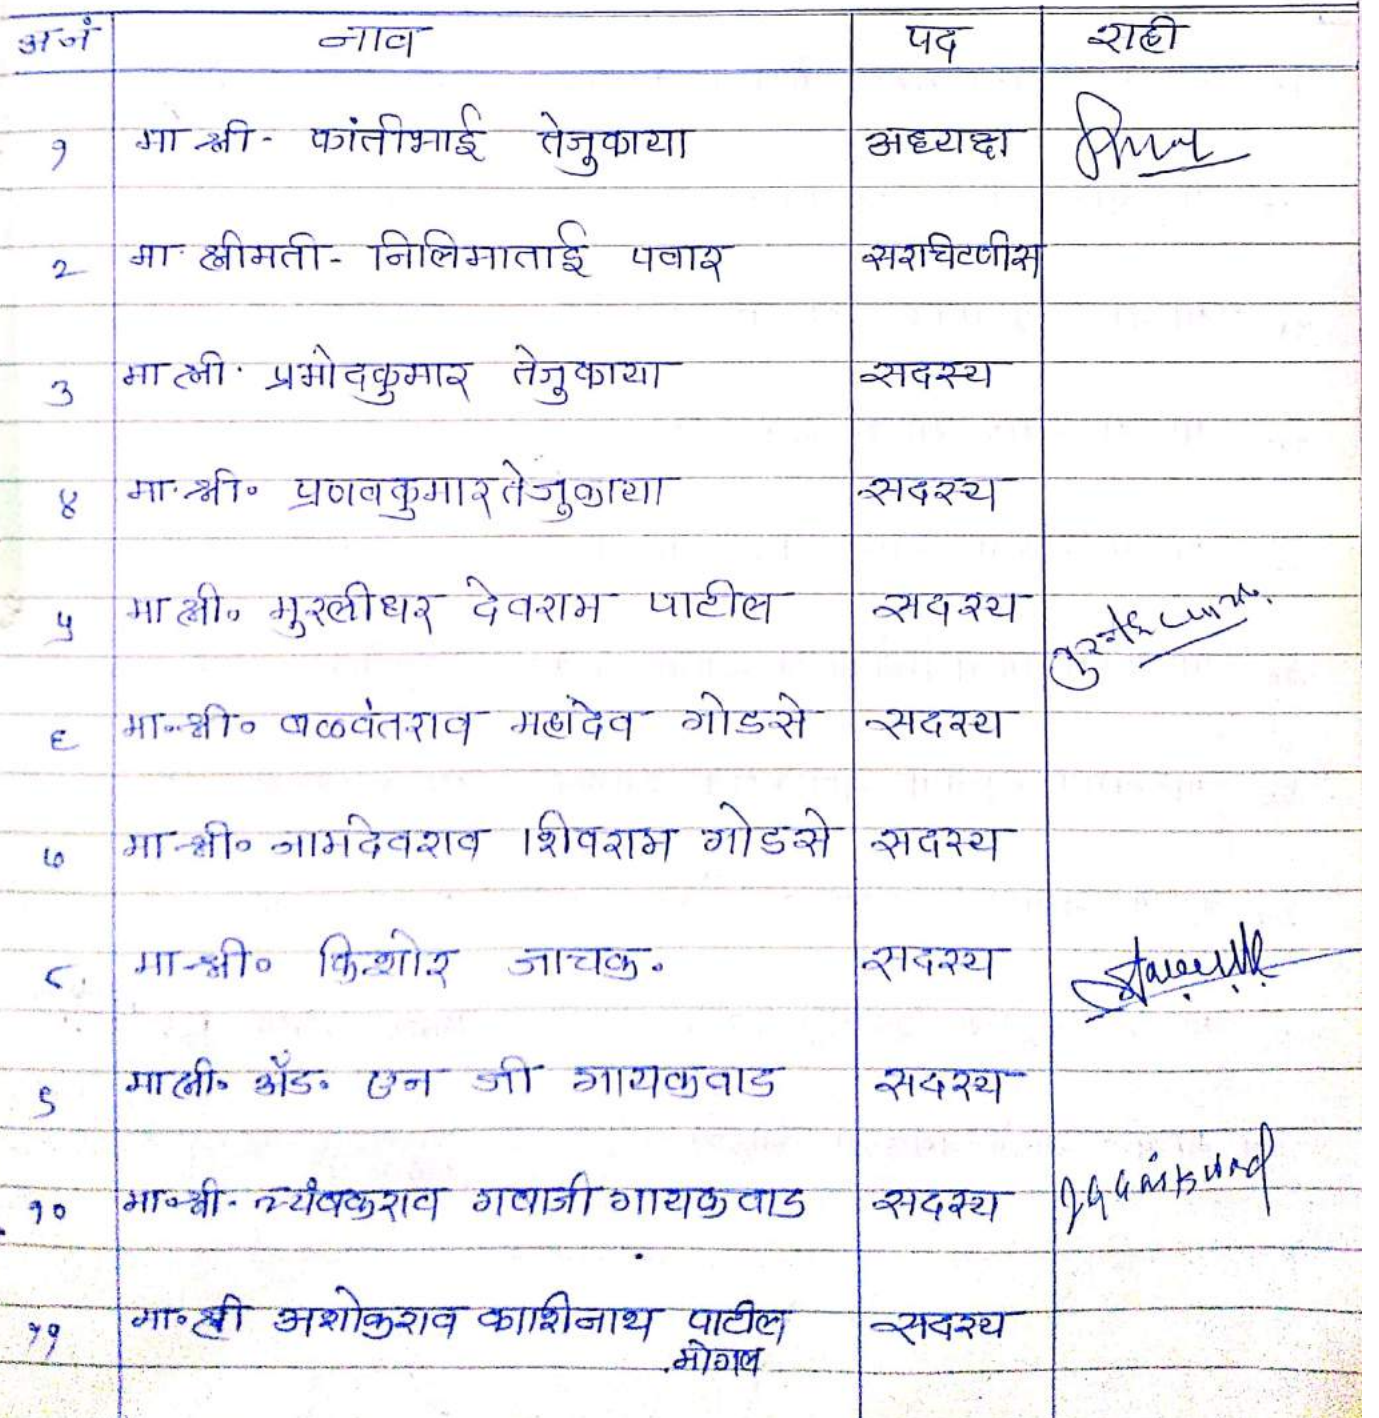 अ नं नाव पद सही
१ मा श्री - कांतीभाई तेजुकाया अध्यक्ष
२ मा. श्रीमती - निलिमाताई पवार सरचिटणीस
३ मा श्री. प्रमोदकुमार तेजुकाया सदस्य
४ मा. श्री. प्रणवकुमार तेजुकाया सदस्य
५ मा श्री. मुरलीधर देवराम पाटील सदस्य
६ मा. श्री. बळवंतराव महादेव गोडसे सदस्य
७ मा श्री. नामदेवराव शिवराम गोडसे सदस्य
८. मा श्री. किशोर जाचक. सदस्य
९ मा श्री. अॅड. एन जी गायकवाड सदस्य
१० मा. श्री. त्र्यंबकराव गबाजी गायकवाड सदस्य
११ मा. श्री अशोकराव काशिनाथ पाटील सदस्य
मोगल